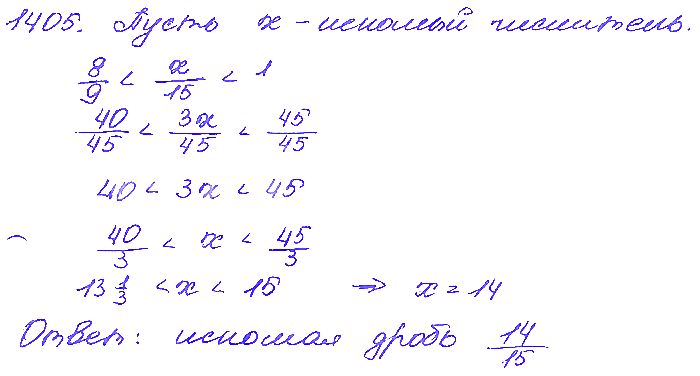 1405. Пусть x - искомый числитель.
8/9 < x/15 < 1
40/45 < 3x/45 < 45/45
40 < 3x < 45
40/3 < x < 45/3
13 1/3 < x < 15 ⇒ x = 14
Ответ: искомая дробь 14/15